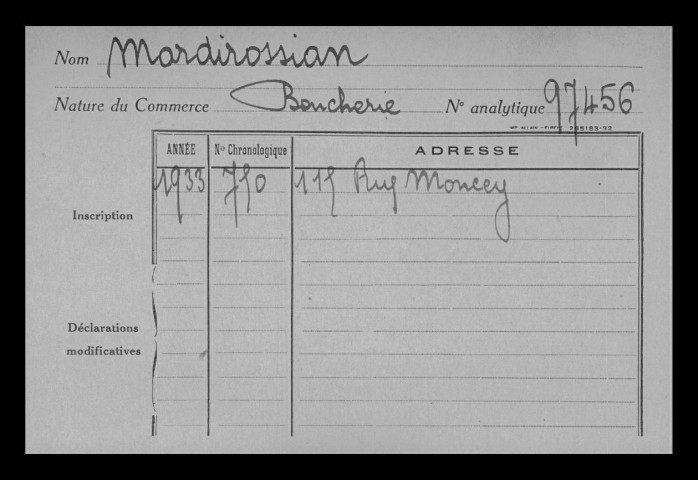 Nom Mardirossian
Nature du Commerce Boucherie No analytique 97456
ANNÉE No Chronologique ADRESSE
1933 750 115 Rue Moncey
Inscription
Déclarations
modificatives